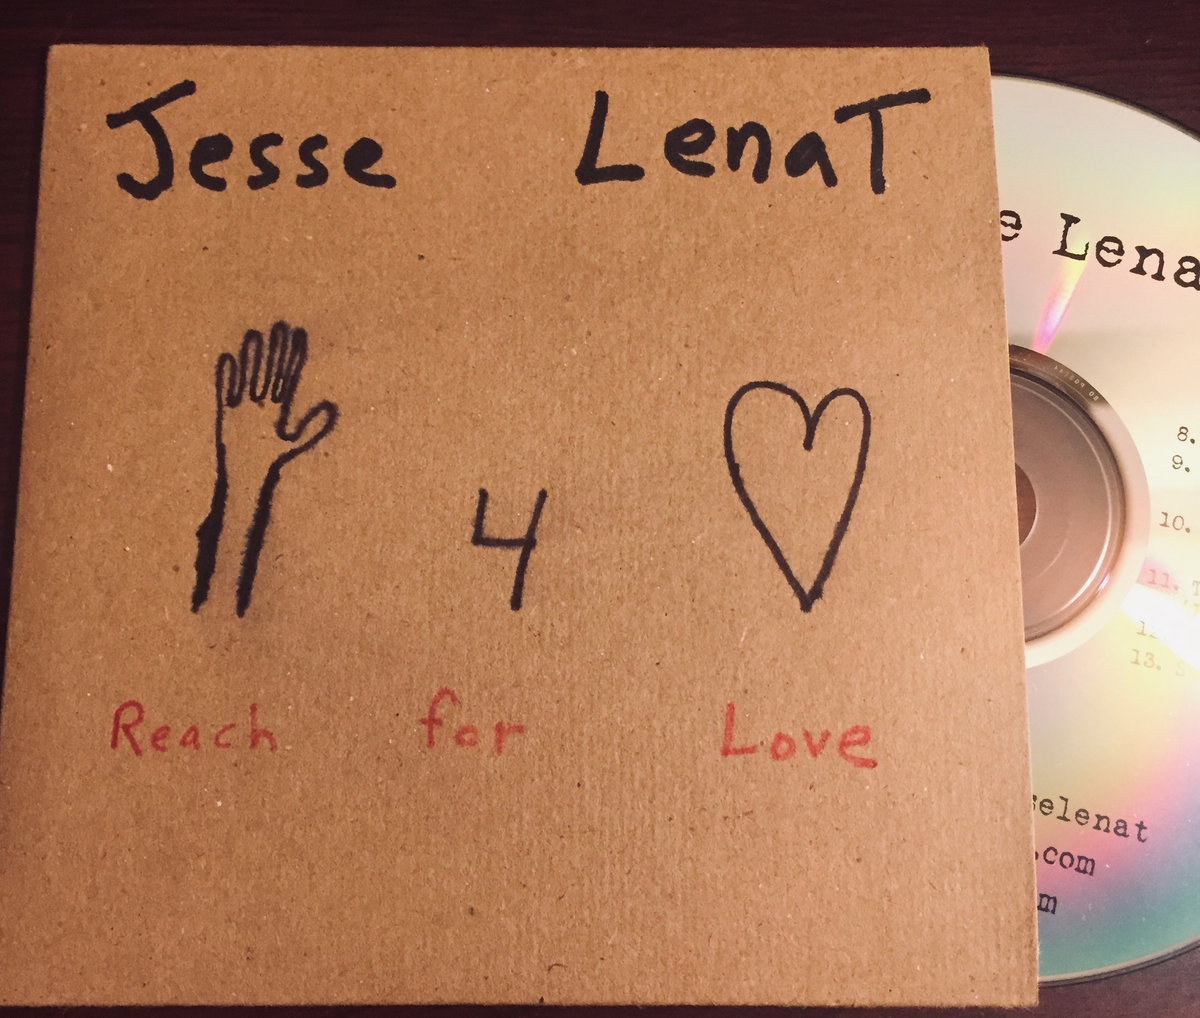 Jesse LenaT
4
Reach for Love
e Lena
8.
9.
10.
11. T
12.
13. S
selenat
.com
m